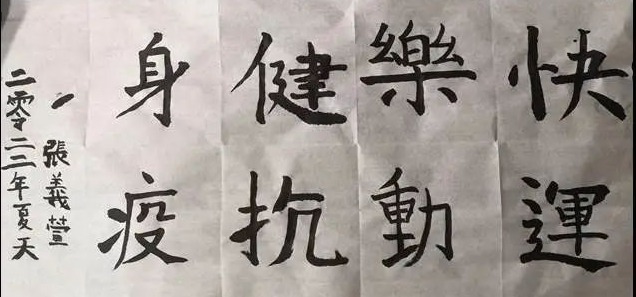 快樂健身
運動抗疫
張義萱
二零二二年夏天